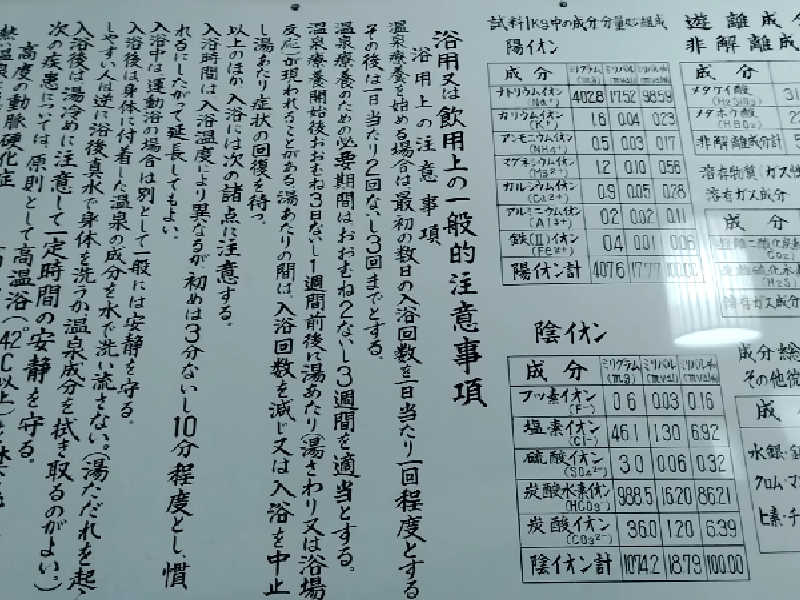 浴用又は飲用上の一般的注意事項
浴用上の注意事項
温泉療養を始める場合は最初の数日の入浴回数を一日当たり一回程度とする
その後は一日当たり2回ないし3回までとする。
温泉療養のための必要期間はおおむね2ないし3週間を適当とする。
温泉療養開始後おおむね3日ないし1週間前後に湯あたり(湯さわり又は浴場
反応)が現われることがある。湯あたりの間は、入浴回数を減じ又は入浴を中止
し湯あたり症状の回復を待つ。
以上のほか入浴には次の諸点に注意する。
入浴時間は入浴温度により異なるが、初めは3分ないし10分程度とし、慣
れるにしたがって延長してもよい。
入浴中は運動浴の場合は別として一般には安静を守る。
入浴後は身体に付着した温泉の成分を水で洗い流さない。(湯ただれを起
しやすい人は逆に浴後真水で身体を洗うか、温泉成分を拭き取るのがよい。)
入浴後は湯冷めに注意して一定時間の安静を守る。
次の疾患については、原則として高温浴(42℃以上)を
高度の動脈硬化症
試料1kg中の成分分量及び組成
陽イオン
成分 ミリグラム(mg) ミリバル(mval) ミリバル%(mval%)
ナトリウムイオン(Na⁺) 402.8 17.52 98.59
カリウムイオン(K⁺) 1.6 0.04 0.23
アンモニウムイオン(NH₄⁺) 0.5 0.03 0.17
マグネシウムイオン(Mg²⁺) 1.2 0.10 0.56
カルシウムイオン(Ca²⁺) 0.9 0.05 0.28
アルミニウムイオン(Al³⁺) 0.2 0.02 0.11
鉄(II)イオン(Fe²⁺) 0.4 0.01 0.06
陽イオン計 407.6 17.77 100.00
陰イオン
成分 ミリグラム(mg) ミリバル(mval) ミリバル%(mval%)
フッ素イオン(F⁻) 0.6 0.03 0.16
塩素イオン(Cl⁻) 46.1 1.30 6.92
硫酸イオン(SO₄²⁻) 3.0 0.06 0.32
炭酸水素イオン(HCO₃⁻) 988.5 16.20 86.21
炭酸イオン(CO₃²⁻) 36.0 1.20 6.39
陰イオン計 1074.2 18.79 100.00
遊離成
非解離成
成分
メタケイ酸(H₂SiO₃) 31
メタホウ酸(HBO₂) 2
非解離成分計
溶存物質(ガス
溶存ガス成分
成分
(CO₂)
(H₂S)
溶存ガス成分
成分総
その他微
成
水銀・
クロム・マ
ヒ素・